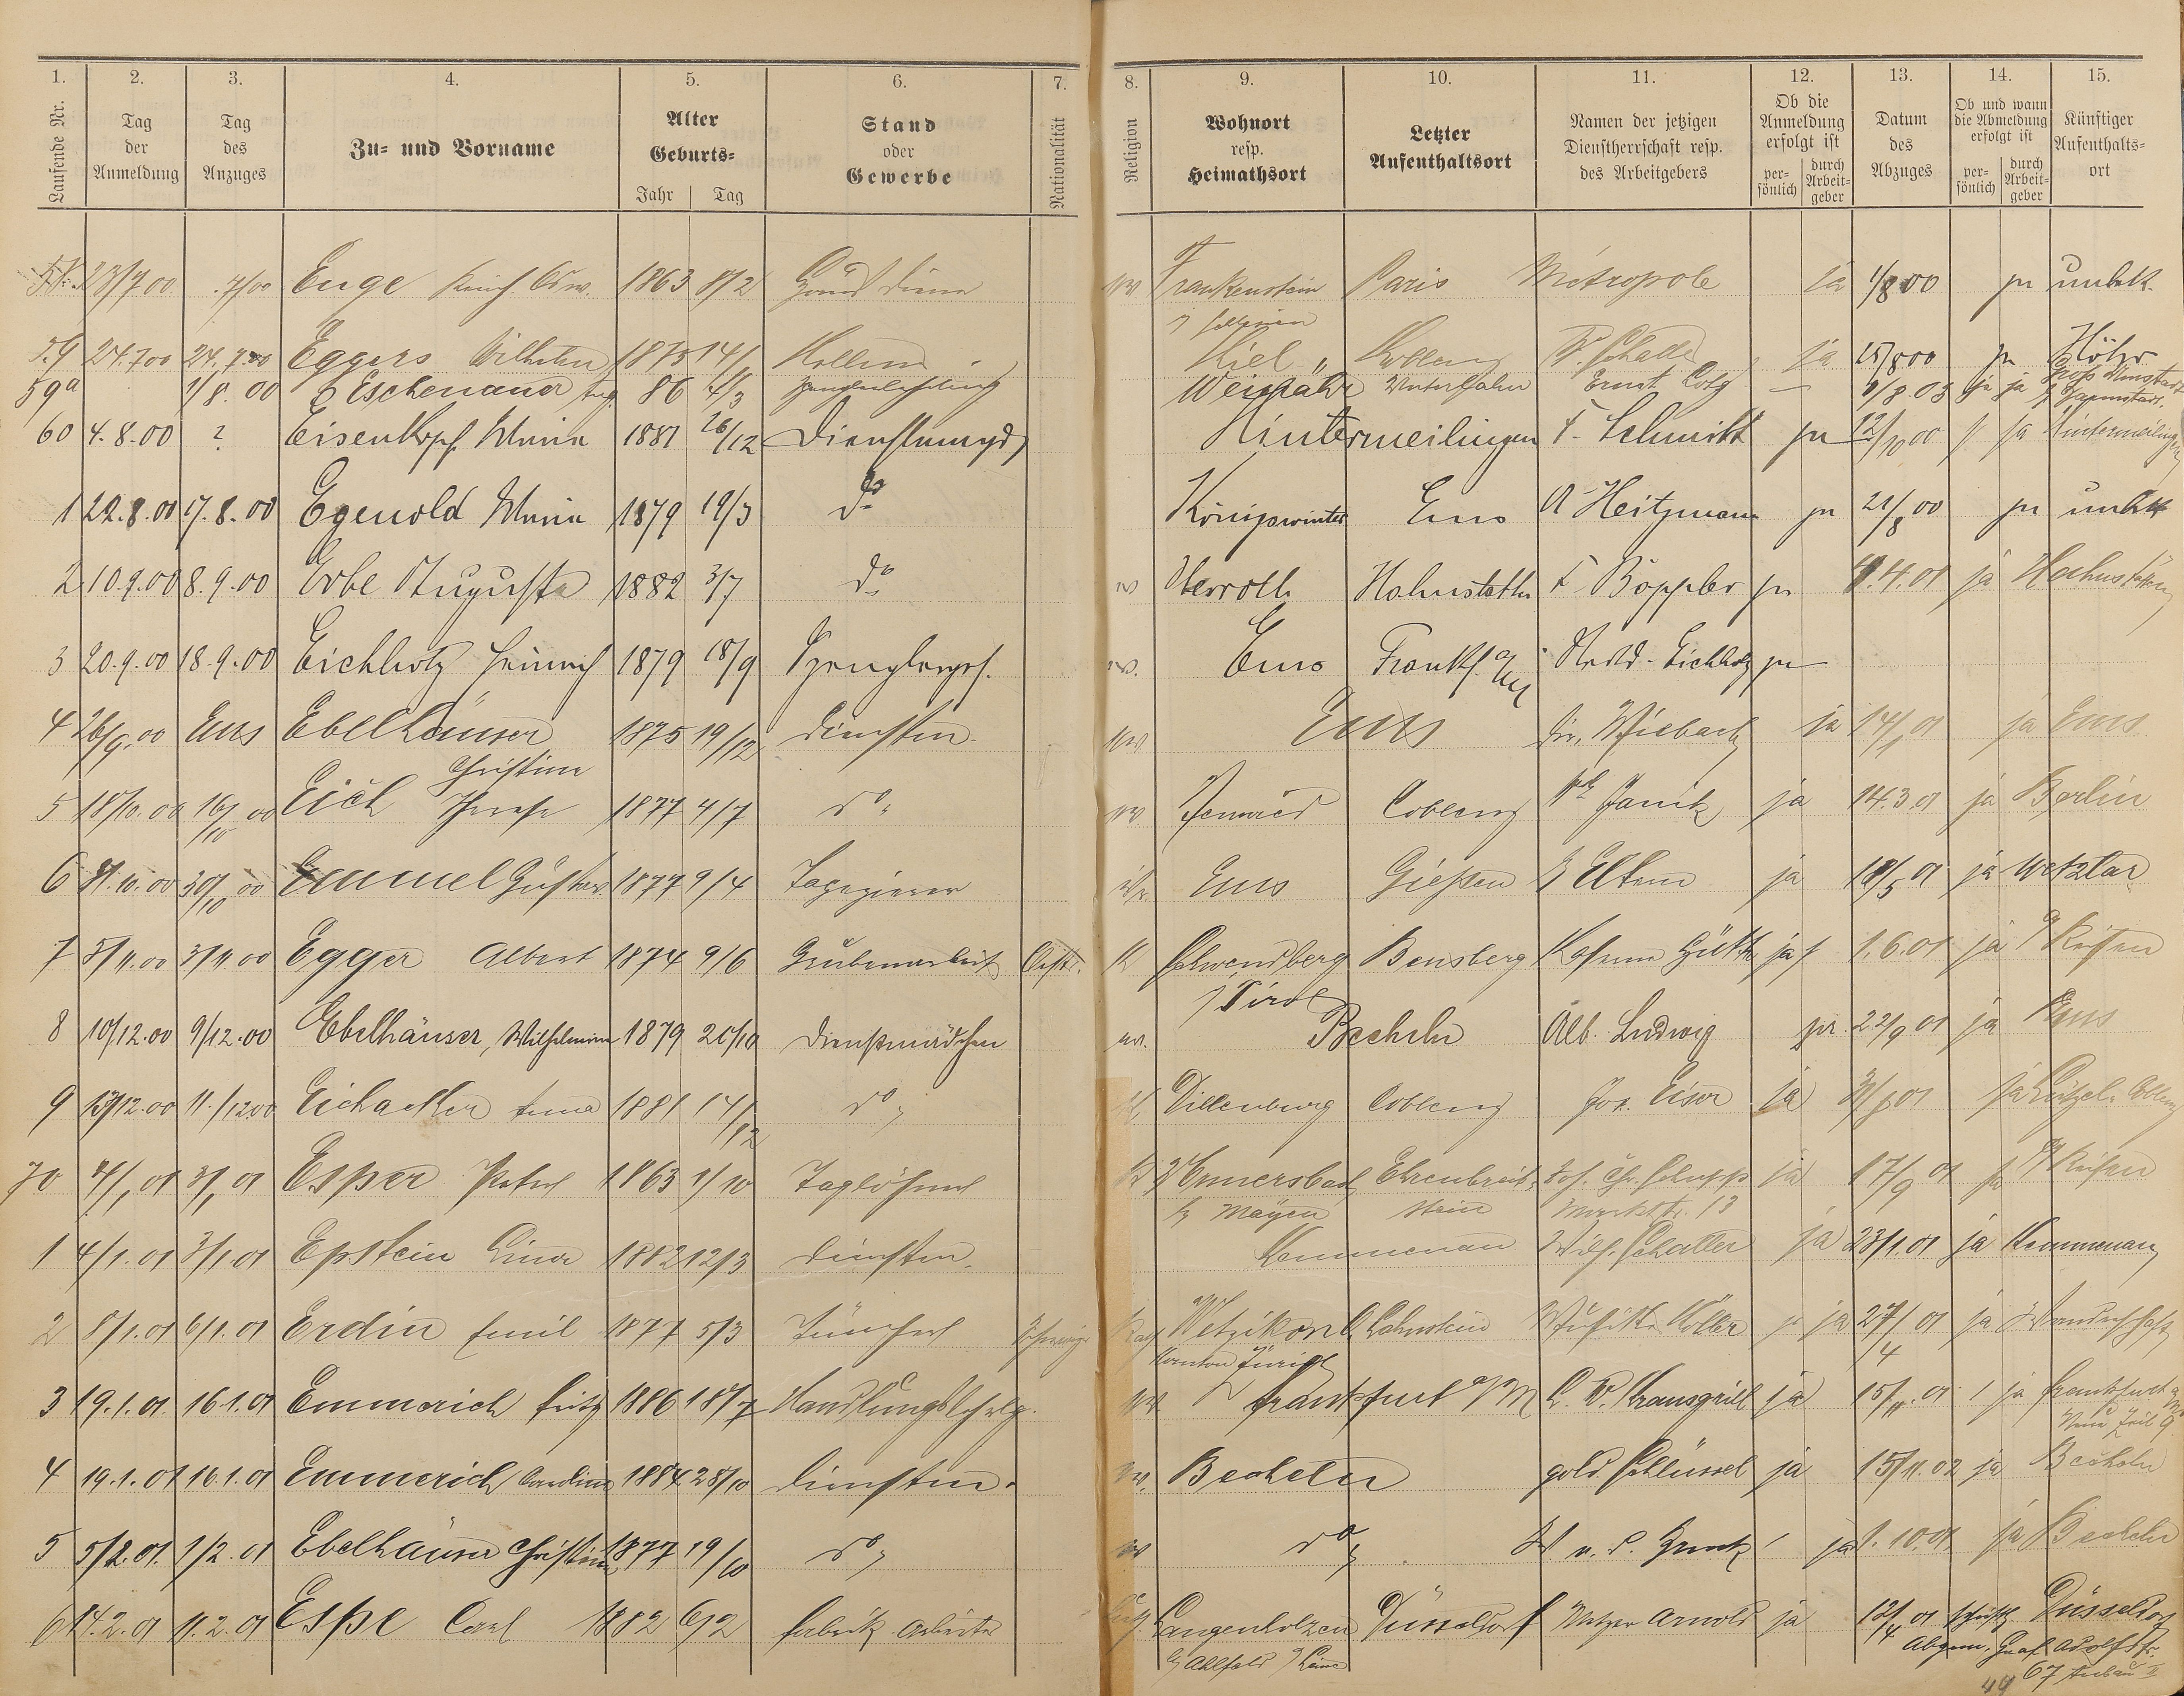 1. 2. 3. 4. 5. 6. 7. 8. 9. 10. 11. 12. 13. 14. 15.
Laufende Nr.
Tag der Anmeldung
Tag des Anzuges
Zu- und Vorname
Alter Geburts- Jahr Tag
Stand oder Gewerbe
Nationalität
Religion
Wohnort resp. Heimathsort
Letzter Aufenthaltsort
Namen der jetzigen Dienstherrschaft resp. des Arbeitgebers
Ob die Anmeldung erfolgt ist per- sönlich durch Arbeit- geber
Datum des Abzuges
Ob und wann die Abmeldung erfolgt ist per- sönlich durch Arbeit- geber
Künftiger Aufenthalts- ort
23/7 00 Enge 1863 8/2 Frankenstein Paris Métropole ja 1/8 00 ja unbek.
i/ Schlesien
59 24.7.00 24.7.00 Eggers Wilhelm 1875 Kellner Kiel Koblenz W. Schaller ja 15/8 00 ja Höhr
59a 1/8.00 Eschenauer Aug. 86 4/3 Spenglerlehrling Weinähr Ernst Lotz 9/8.03 ja ja
60 4.8.00 ? Eisenkopf Maria 1881 26/12 Dienstmagd Hintermeilingen F. Schmitt ja 12/10 00 ja Hintermeilingen
1 22.8.00 17.8.00 Egenold Maria 1879 19/3 do Königswinter Ems A Heitzmann ja 21/8 00 ja unbek
2 10.9.00 8.9.00 Erbe Auguste 1882 3/7 do Herroth Hahnstätten F. Böppler ja 4.4.01 ja Hahnstätten
3 20.9.00 18.9.00 Eichholz Heinrich 1879 18/9 Spenglerges. Ems Frankf. a/M Eichholz ja
4 26/9.00 Ems Ebelhäuser 1875 19/12 Dienstm. Ems Wiebach ja 14/1 01 ja Ems
Christine
5 18/10.00 16/10 00 Eich Therese 1877 4/7 do Coblenz Janik ja 14.3.01 ja Berlin
6 31.10.00 30/10 00 Emmel Gustav 1877 9/4 Tapezierer Ems Gießen b/ Eltern ja 18/5 01 ja Wetzlar
7 5/11.00 3/11.00 Egger Albert 1874 9/6 Grubenarbeit. Östr. K Schwendberg Bensberg Kaserne Hütte ja 1.6.01 ja a/ Reisen
i/ Tirol
8 10/12.00 9/12.00 Ebelhäuser, Wilhelmine 1879 20/10 Dienstmädchen ev. Becheln Alb. Ludwig ja 22/9 01 ja Ems
9 13/12.00 11./12.00 Eichacker Anna 1881 14/12 do K Dillenburg Coblenz Jos. Eiser ja ja Lützel Coblenz
70 4/1 01 3/1 01 Esper Peter 1863 1/10 Taglöhner K Ehrenbreit- Jos. Chr. Schupp ja 17/9 01 ja a/ Reisen
b/ Mayen stein Marktstr. 13
1 4/1.01 3/1 01 Epstein Lina 1882 12/3 Dienstm. Kemmenau Wilh. Schaller ja 23/1.01 ja Kemmenau
2 8/1.01 6/1.01 Erdin Emil 1877 5/3 Tüncher Schweiz Kath Wetzikon O. Lahnstein Köller ja 27/4 01 ja Wanderschaft
Kanton Zürich
3 19.1.01. 16.1.01 Emmerich Fritz 1886 18/7 Handlungslehrlg. ev. Frankfurt a/M C. W. Kransgrill ja 15/11.01 ja Frankfurt a M
Neue Zeil 9
4 19.1.01 16.1.01 Emmerich Caroline 1884 28/10 Dienstm. ev. Becheln gold. Schlüssel ja 15/11.02 ja Becheln
5 5/2.01. 1/2.01 Ebelhäuser Christine 1877 19/10 do ev do ja 1.10.01 ja Becheln
6 14.2.01 11.2.01 Espe Carl 1882 6/2 Fabrik Arbeiter Luth. Langenholzen Düsseldorf Metzger Arnold ja 12/4 01 schriftl. Düsseldorf
b/ Ahlfeld a/ Leine Abgem. Graf Adolfstr.
67 Anbau II
44